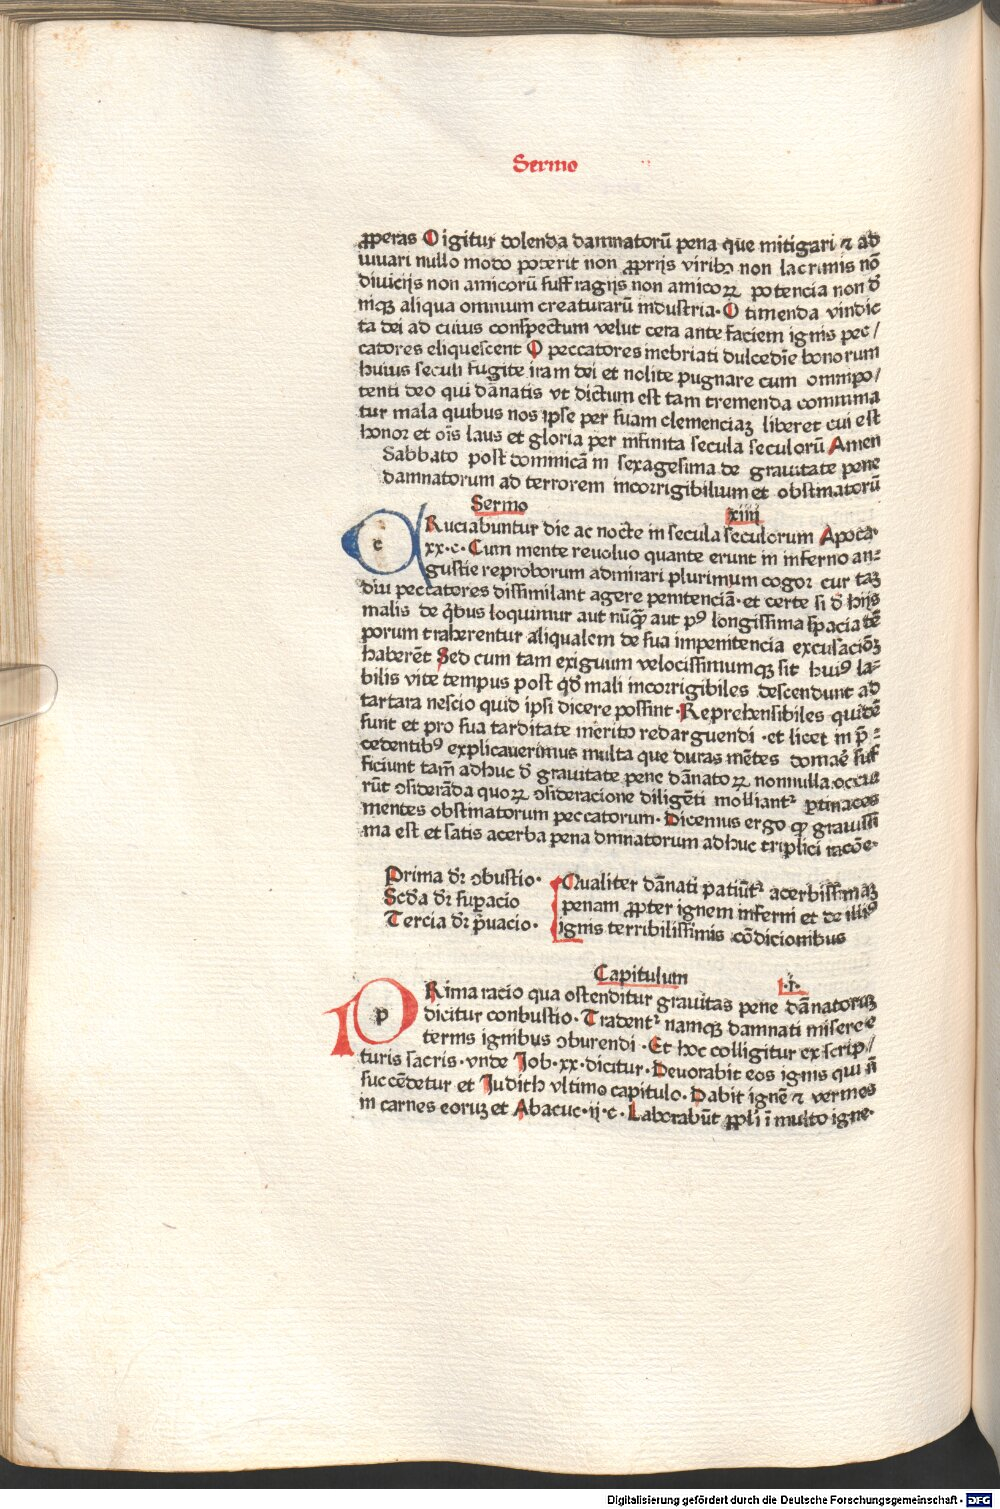 Sermo
ꝓperas O igitur dolenda damnatorū pena que mitigari ⁊ ad
iuuari nullo modo poterit non ꝓprijs viribꝫ non lacrimis nō
diuicijs non amicorū suffragijs non amicoꝝ potencia non đ
niqꝫ aliqua omnium creaturarū industria· O timenda vindic
ta dei ad cuius conspectum velut cera ante faciem ignis pec/
catores eliquescent O peccatores inebriati dulcedīe bonorum
huius seculi fugite iram dei et nolite pugnare cum omnipo/
tenti deo qui dānatis vt dictum est tam tremenda commina
tur mala quibus nos ipse per suam clemenciaꝫ liberet cui est
honor et oīs laus et gloria per infinita secula seculorū Amen
Sabbato post dominicā in sexagesima de grauitate pene
damnatorum ad terrorem incorrigibilium et obstinatorū
Sermo xiiii
c Ruciabuntur die ac nocte in secula seculorum Apoca·
xx·c· Cum mente reuoluo quante erunt in inferno an-
gustie reproborum admirari plurimum cogor cur taꝫ
diu peccatores dissimilant agere penitenciā· et certe si đ hijs
malis de q̄bus loquimur aut nūqꝫ aut pꝰ longissima spacia tē
porum traherentur aliqualem de sua impenitencia excusaciōꝫ
haberēt Sed cum tam exiguum velocissimumqꝫ sit huiꝰ la-
bilis vite tempus post qđ mali incorrigibiles descendunt ad
tartara nescio quid ipsi dicere possint· Reprehensibiles quidē
sunt et pro sua tarditate merito redarguendi · et licet in p̄ -
cedentibꝰ explicauerimus multa que duras mētes domāe suf
ficiunt tam̄ adhuc đ grauitate pene dānatoꝝ nonnulla occur
rūt ɔsiderāda quoꝝ ɔsideracione diligēti molliantᷣ ꝑtinaces
mentes obstinatorum peccatorum· Dicemus ergo ꝙ grauissi
ma est et satis acerba pena dmnatorum adhuc triplici racōe·
Prima dr̄ ɔbustio·
Scđa dr̄ supacio
Tercia dr̄ p̄uacio·
Qualiter dānati patiūtᷣ acerbissimaꝫ
penam ꝓpter ignem inferni et de illiꝰ
ignis terribilissimis cōdicionibus
Capitulum ·i·
p Rima racio qua ostenditur grauitas pene dānatoruꝫ
dicitur conbustio· Tradentᷣ namqꝫ damnati misere e
ternis ignibus ɔburendi · Et hoc colligitur ex scrip/
turis sacris· vnde Job· xx· dicitur· Deuorabit eos ignis qui n̄
succēdetur et Judith vltimo capitulo· Dabit ignē ⁊ vermes
in carnes eoruꝫ et Abacuc· ij·c· Laborabūt ꝓpli ī multo igne·
Digitalisierung gefördert durch die Deutsche Forschungsgemeinschaft - DFG